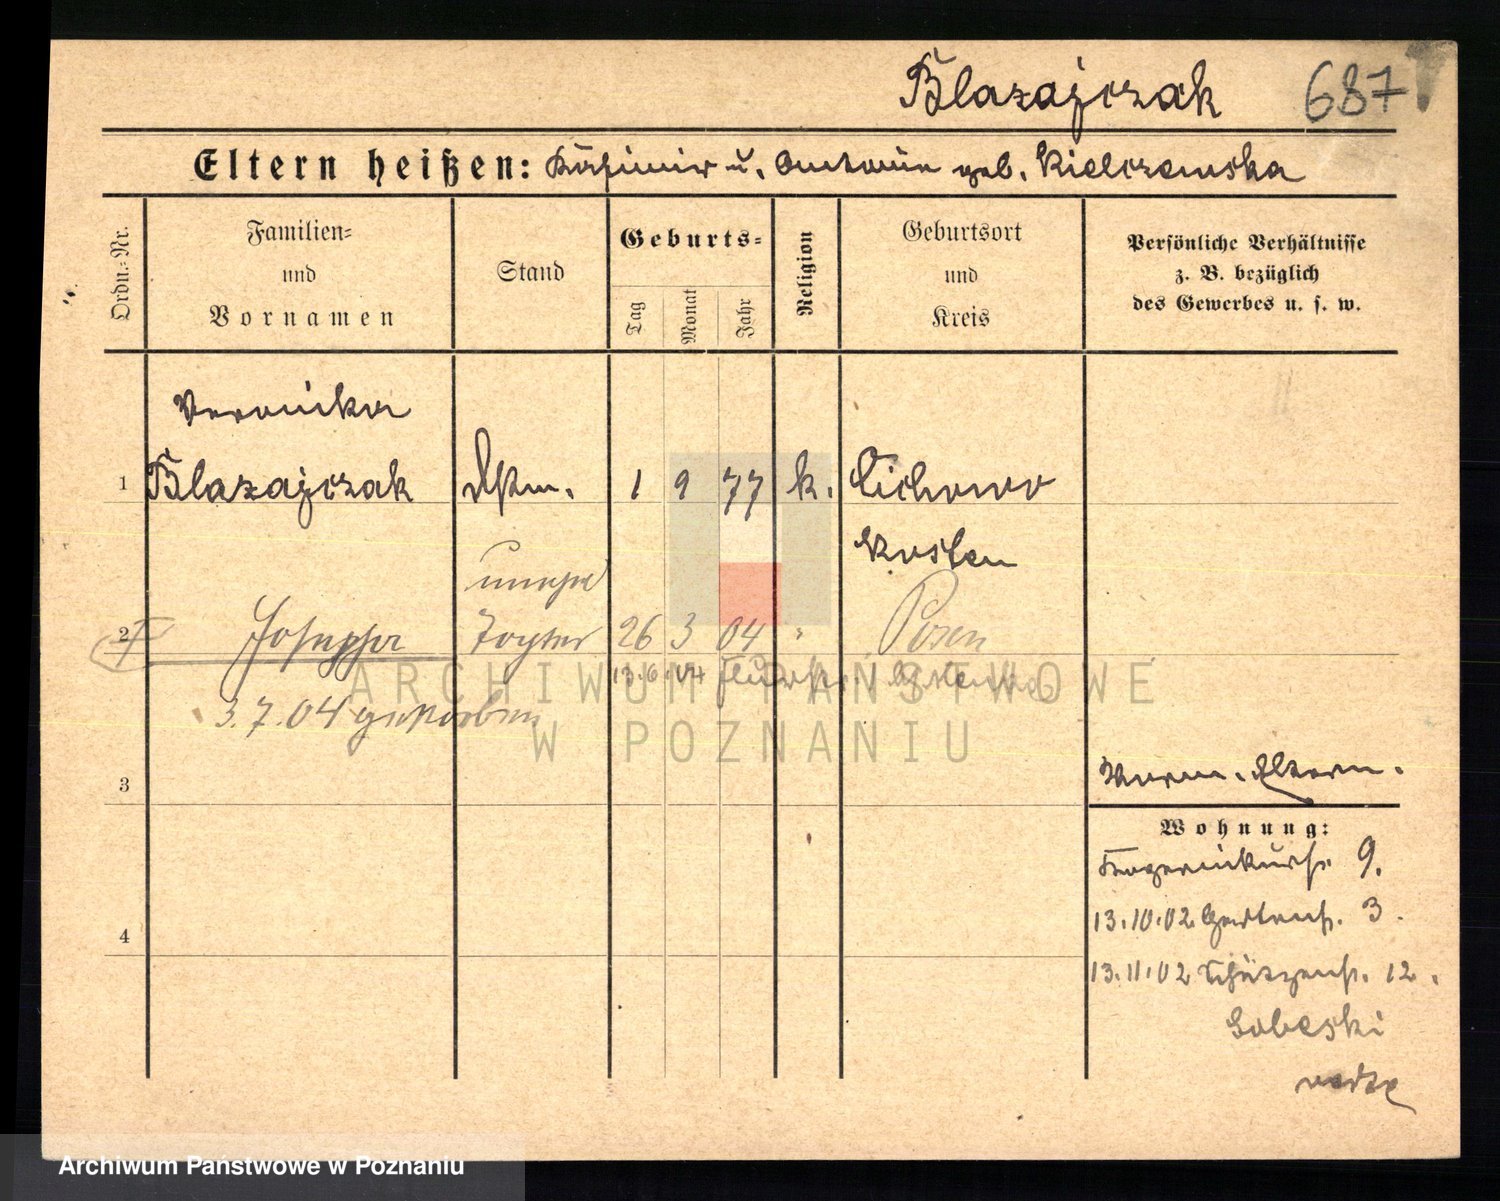 Blazajczak 687
Eltern heißen: Kasimir u. Antonie geb. Kielczewska
Ordn.-Nr.
Familien-
und
Vornamen
Stand
Geburts-
Tag
Monat
Jahr
Religion
Geburtsort
und
Kreis
Persönliche Verhältnisse
z. B. bezüglich
des Gewerbes u. s. w.
Veronika
1 Blazajczak 1 9 77 k. Cichowo
Kosten
unehel
2 Josepha Tochter 26 3 04 " Posen
13.6.04
3.7.04 gestorben
ARCHIWUM PAŃSTWOWE
W POZNANIU
3
Eltern.
Wohnung:
9.
13.10.02 Gartenstr. 3.
13.11.02 Schützenstr. 12.
Sobeski
4
Archiwum Państwowe w Poznaniu